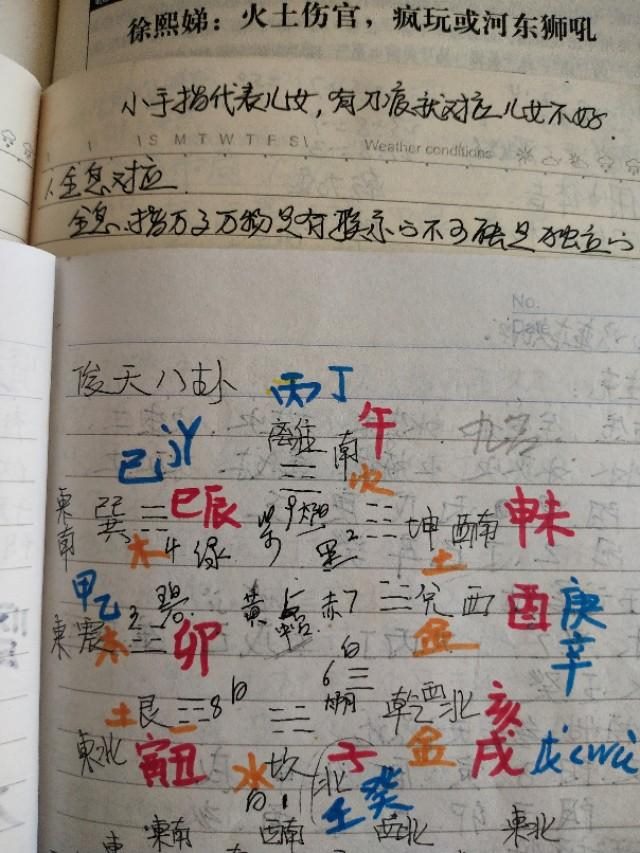 徐熙娣：火土伤官，疯玩或河东狮吼
小手指代表儿女，有刀疤就对应儿女不好
S M T W T F S Weather conditions
1、全息对应
全息:指万事万物是有联系的不可能是独立的
No.
Date
後天八卦 丙丁
離 南 午
己 火
東南 巽 巳辰 紫 9 2 坤 西南 申未
木 4 绿 黑 土
甲乙 3 碧 黄 5 赤 7 兌 西 酉 庚
東 震 木 卯 金 辛
白 6 白
土 艮 8 白 乾 西北 亥
東北 寅丑 水 坎 北 子 金 戌 戊
白 1 壬癸
東南 西南 西北 東北